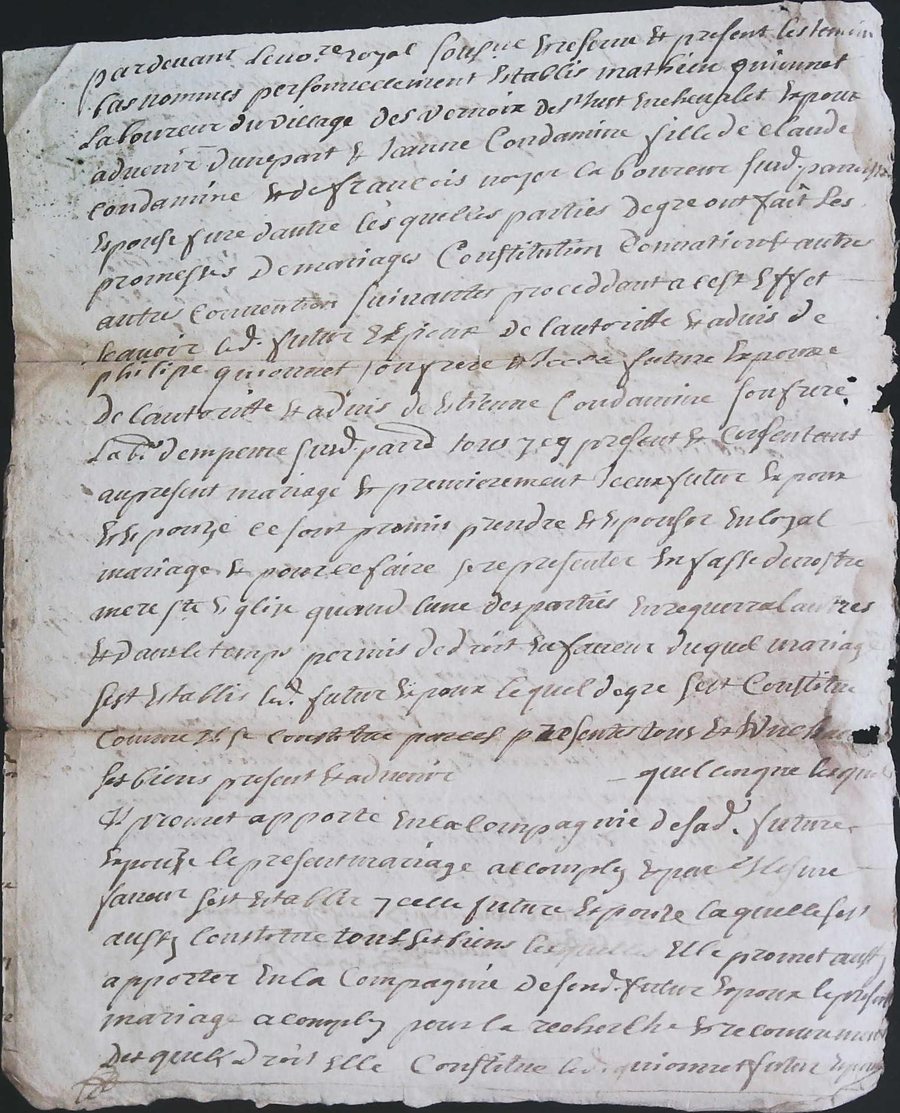 pardevant Le no.re royal soubsigne Et present les temoin
bas nommes personnellement Establis mathieu quionnet
Laboureur du village des vernoix Espoux
advenir Dune part Et Jeanne Condamine fille de claude
condamine Et de francois laboureur susd. parroisse
Espouse future dautre lesquelles parties De gre ont fait Les
promesses De mariages Constitution donnations Et autres
autres Convention suivantes proceddant a cest Effet
scavoir led. futur Espoux De lautoritte Et advis de
philipe quionnet son frere Et Icelle future Espouze
De lautoritte Et advis de Estienne Condamine son frere
Lab.r susd. parr tous icy present Et Consentant
au present mariage Et premierement Iceux futur Espoux
Et Espouze ce sont promis prendre Et Espouser En loyal
mariage Et pour ce faire se representer En fasse de nostre
mere s.te Eglise quand lune des parties En requerra lautres
Et Dans le temps permis de droit En faveur duquel mariage
sest Establis led. futur Espoux lequel de gre sest Constitue
Comme Il se constitue par ces presentes tous Et Uns
ses biens present Et advenir quelconque lesquels
Il promet apporte En la Compagnie de sad. future
Espouze le present mariage acomply Et par Mesme
faveur sest Establie ycelle future Espouze laquelle sest
aussy Constitue tous ses biens lesquelles Elle promet aussy
apporter En la Compagnie de sond. futur Espoux le present
mariage acomply pour la recherche Et recouvrement
Desquels Droit Elle Constitue led. quionnet futur Espoux